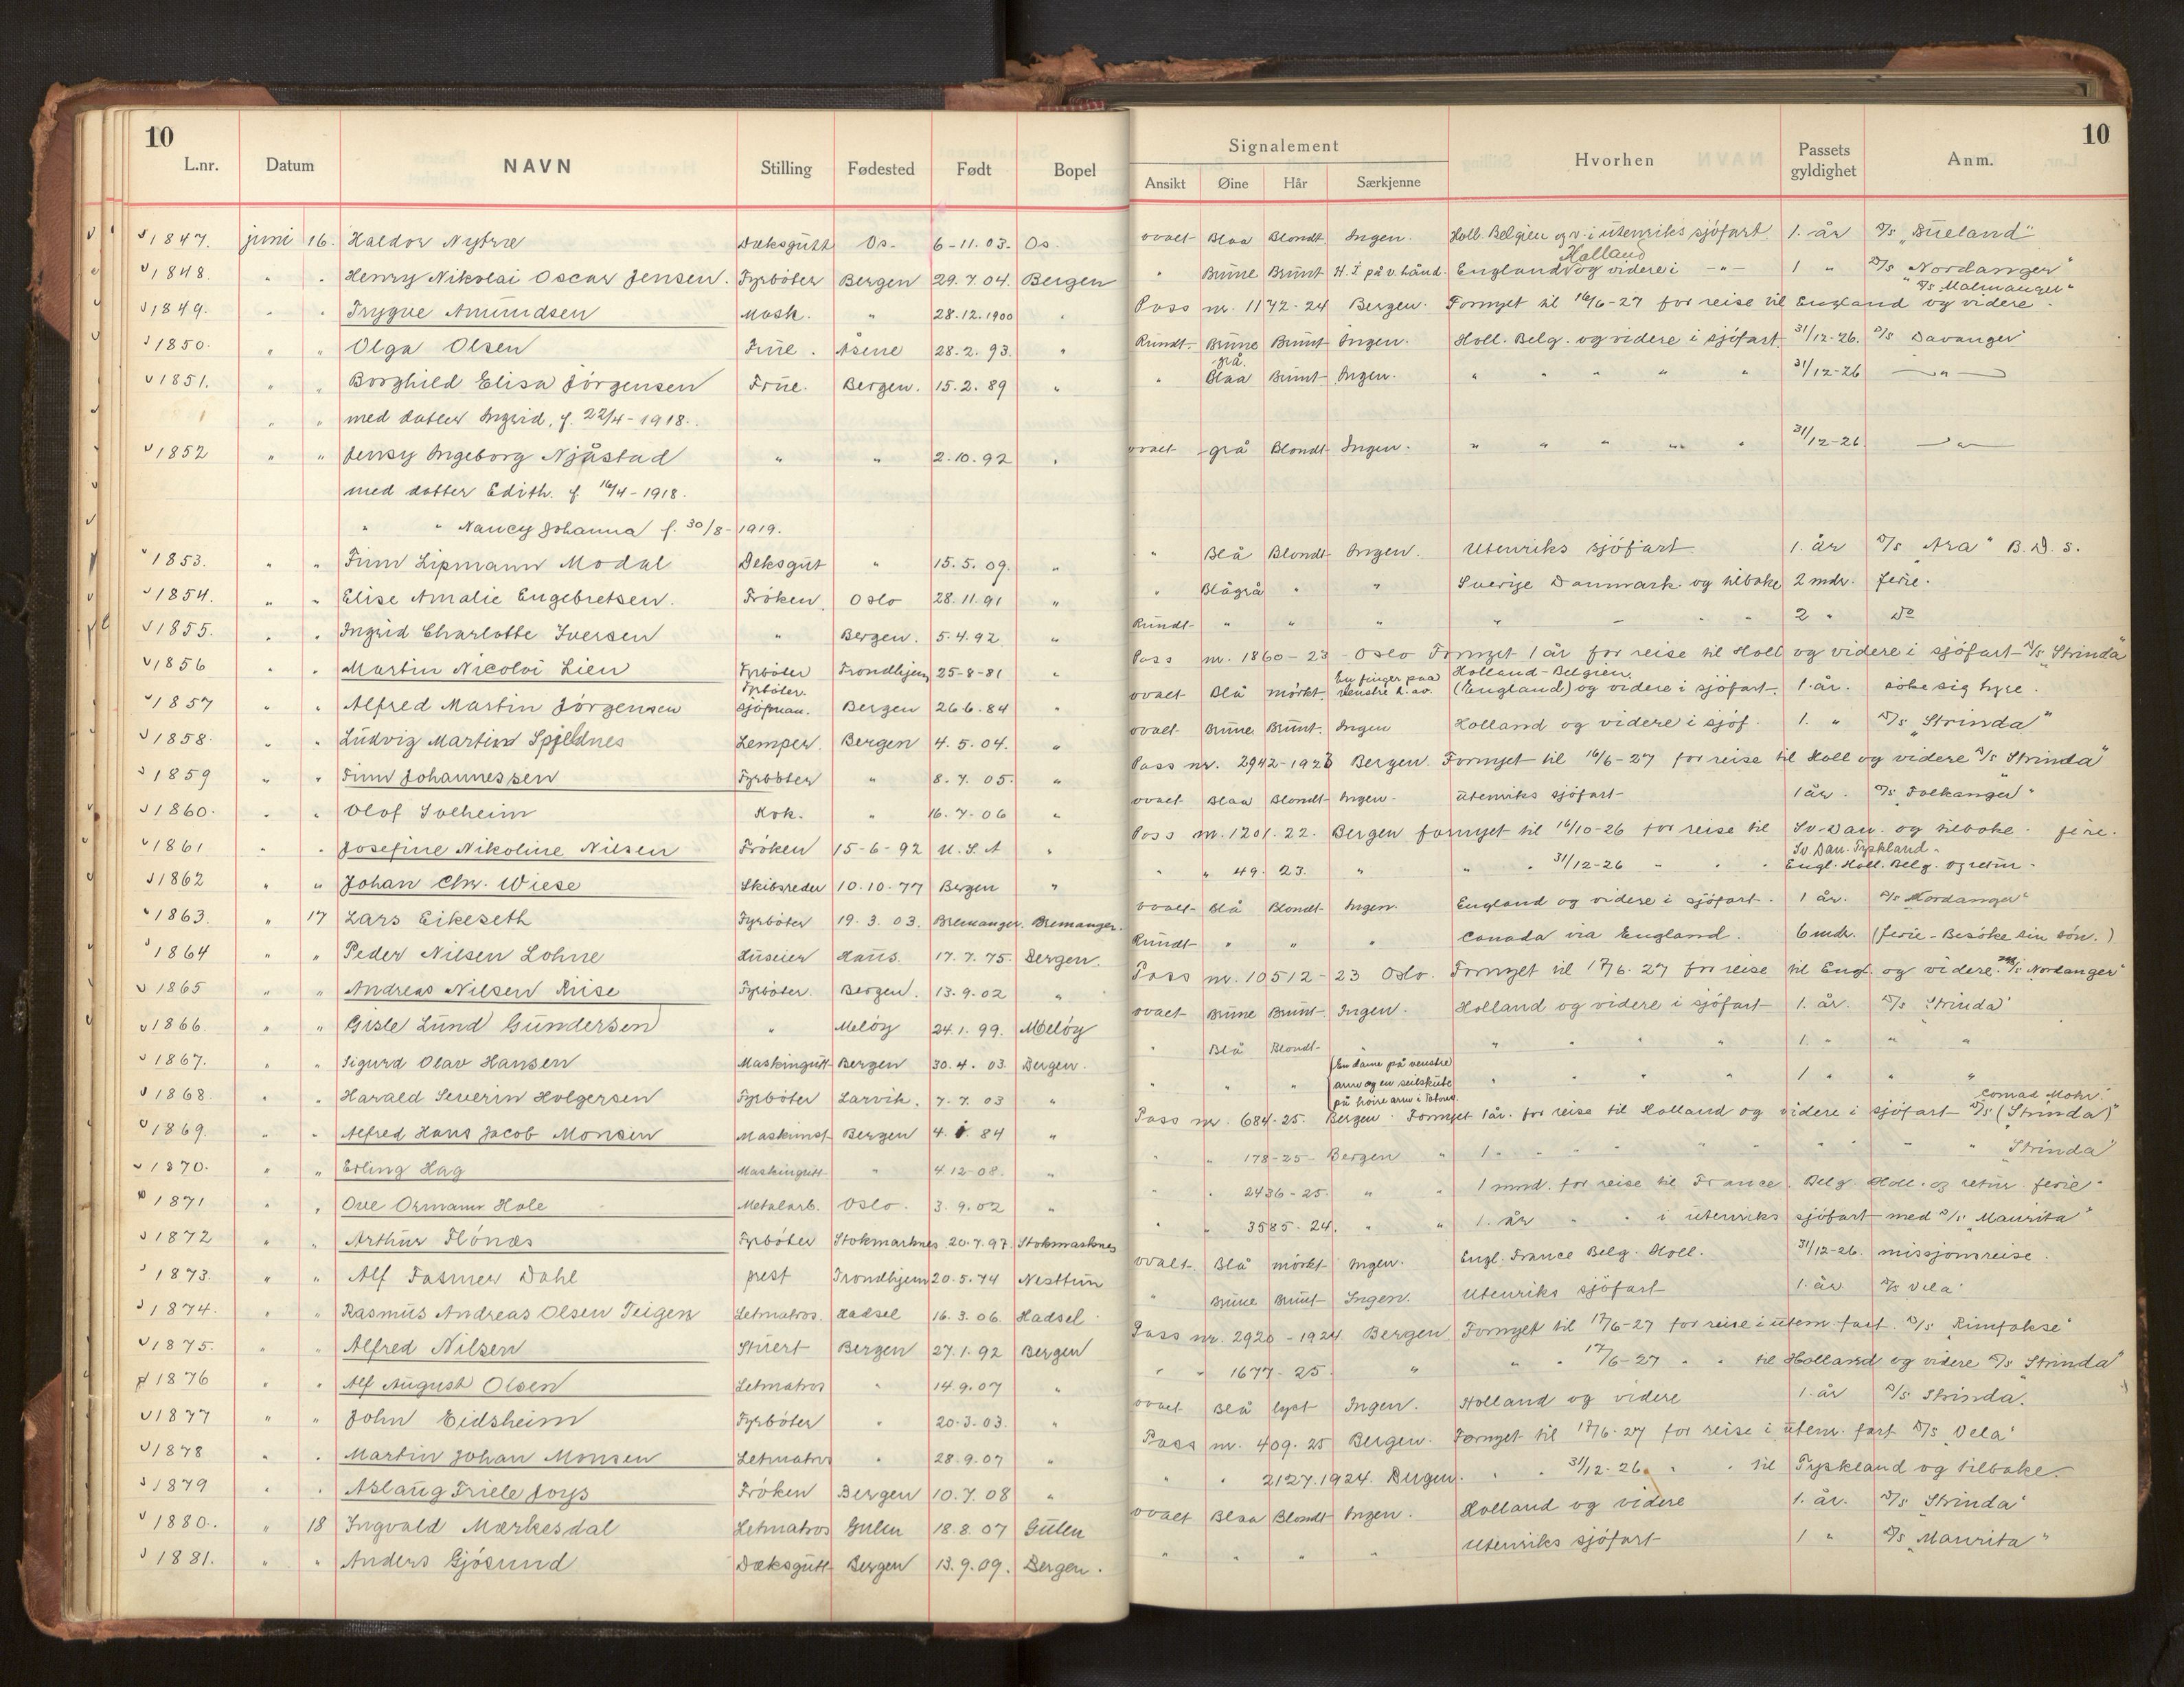 10
L.nr. Datum NAVN Stilling Fødested Født Bopel
Signalement
Ansikt Øine Hår Særkjenne Hvorhen Passets gyldighet Anm.
10
1847. juni 16. Haldor Nytræ Dæksgutt Os. 6-11.03. Os. ovalt Blaa Blondt Ingen. Holl. Belgien og v. i utenriks sjöfart 1. år D/s "Bueland"
1848. " " Henry Nikolai Oscar Jensen. Fyrböter Bergen 29.7.04. Bergen " Brune Brunt H.J. på v. hånd. England Holland og videre i -"- 1 " D/s "Nordanger" D/s "Malmanger"
1849. " " Trygve Amundsen Mask. " 28.12.1900 " Pass nr. 1172-24 Bergen. Fornyet til 16/6-27 for reise til England og videre.
1850. " " Olga Olsen Frue. Åsene 28.2.93. " Rundt. Brune Brunt Ingen. Holl. Belg. og videre i sjöfart. 31/12-26. D/s Davanger
1851. " " Borghild Elisa Jörgensen Frue. Bergen. 15.2.89 " " grå Blaa Brunt Ingen. " " " " " 31/12-26 "
" " med datter Ingrid, f. 22/4-1918.
1852 " " Jensy Ingeborg Njåstad " " 2.10.92 " ovalt grå Blondt Ingen. " " " " " 31/12-26. "
med datter Edith. f 16/4-1918.
" " Nancy Johanna f. 30/8-1919.
1853. " " Finn Lipmann Modal Deksgut " 15.5.09. " " Blå Blondt Ingen. Utenriks sjöfart 1. år D/s "Ara" B.D.S.
1854. " " Elise Amalie Engebretsen. Fröken. Oslo 28.11.91 " " Blågrå " " Sverige Danmark og tilbake 2 mdr. ferie.
1855. " " Ingrid Charlotte Iversen " Bergen. 5.4.92 " Rundt " " " " " " " 2 " Do
1856 " " Martin Nicolai Lien Fyrböter Trondhjem 25-8-81 " Pass nr. 1860-23 - Oslo Fornyet 1 år for reise til Holl og videre i sjöfart D/s "Strinda"
1857 " " Alfred Martin Jörgensen Fyrböter. sjöman. Bergen 26.6.84 " ovalt Blå mörkt. En finger paa venstre h. av. Holland-Belgien. (England) og videre i sjöfart. 1. år. söke sig hyre.
1858. " " Ludvig Martin Spjeldnes Lemper. Bergen 4.5.04. " ovalt Brune Brunt. Ingen Holland og videre i sjöf. 1. " D/s "Strinda"
1859 " " Finn Johannessen Fyrböter " 8.7.05. " Pass nr. 2942-1923 Bergen. Fornyet til 16/6-27 for reise til Holl og videre D/s "Strinda"
1860. " " Olof Solheim Kok. " 16.7-06 " ovalt Blaa Blondt Ingen. utenriks sjöfart 1 år. D/s "Folkanger"
1861 " " Josefine Nikoline Nilsen Fröken 15-6-92 U.S.A " Pass nr. 1201.22. Bergen fornyet til 16/10-26 for reise til Sv-Dan. og tilbake. ferie.
1862 " " Johan Chr. Wiese Skibsreder 10.10.77 Bergen " " " 49. 23. " " " 31/12-26 " " " Sv. Dan. Tyskland - Engl. Holl. Belg. og retur.
1863. " 17 Lars Eikeseth Fyrböter 19.3.03. Bremanger. Bremanger. ovalt Blå Blondt Ingen. England og videre i sjöfart. 1 år. D/s "Nordanger"
1864 " " Peder Nilsen Lohne Huseier Haus. 17.7.75. Bergen. Rundt " " " Canada via England. 6 mdr. (ferie - Besöke sin sön.)
1865 " " Andreas Nilsen Riise Fyrböter. Bergen. 13.9.02 " Pass nr. 10512-23 Oslo. Fornyet til 17/6.27 for reise til Engl. og videre. D/s "Nordanger"
1866. " " Gisle Lund Gundersen " Melöy 24.1.99. Melöy ovalt Brune Brunt Ingen. Holland og videre i sjöfart 1. år. D/s "Strinda"
1867. " " Sigurd Olav Hansen Maskingutt Bergen 30.4.03. Bergen. " Blå Blondt " " " " " 1. " " "
1868. " " Harald Severin Holgersen Fyrböter Larvik. 7.7.03 " " " " En dame på venstre arm og en seilskute på höire arm i Tatover. " " " " 1 " " "
1869. " " Alfred Hans Jacob Monsen Maskinist Bergen 4.1.84 " Pass nr. 684-25. Bergen. Fornyet 1 år. for reise til Holland og videre i sjöfart D/s Conrad Mohr. ("Strinda")
1870. " " Erling Hag Maskingutt " 4.12-08. " " " 178-25- Bergen " 1 " " " " " " " " "Strinda"
1871 " " Ove Ormann Hole Metalarb. Oslo. 3.9.02 " " " 2436-25. " " 1 mnd. for reise til France. Belg. Holl. og retur ferie.
1872 " " Arthur Flönæs Fyrböter Stokmarknes 20.7.97. Stokmarknes " " 3585-24. " " 1. år " " i utenriks sjöfart med D/s "Maurita"
1873. " " Alf Fasmer Dahl prest Trondhjem 20.5.74 Nesttun ovalt. Blå mörkt Ingen. Engl. France Belg. Holl. 31/12-26. missjonsreise.
1874. " " Rasmus Andreas Olsen Teigen Letmatros. Hadsel 16.3.06. Hadsel. " Brune Brunt Ingen. Utenriks sjöfart 1. år D/s Vela
1875. " " Alfred Nilsen Stuert Bergen 27.1.92 Bergen Pass nr. 2920-1924. Bergen Fornyet til 17/6-27 for reise i utenr. fart D/s "Rimfakse"
1876 " " Alf August Olsen Letmatros " 14.9.07 " " " 1677-25. " " " 17/6-27 " " til Holland og videre D/s "Strinda"
1877 " " John Eidsheim Fyrböter " 20.3.03. " ovalt Blå lyst Ingen. Holland og videre 1. år D/s Strinda.
1878 " " Martin Johan Monsen Letmatros " 28.9.07 " Pass nr. 409.25 Bergen. Fornyet til 17/6.27 for reise i utenr. fart D/s "Vela"
1879 " " Aslaug Friele Joys Fröken Bergen 10.7.08 " " " 2127.1924. Bergen. " " 31/12-26. " " til Tyskland og tilbake.
1880. " 18 Ingvald Mærkesdal Letmatros Gulen 18.8.07 Gulen ovalt Blaa Blondt Ingen. Holland og videre 1. år. D/s "Strinda"
1881. " " Anders Gjösund Dæksgutt Bergen 13.9.09. Bergen. " " " " Utenriks sjöfart 1 " D/s "Maurita"